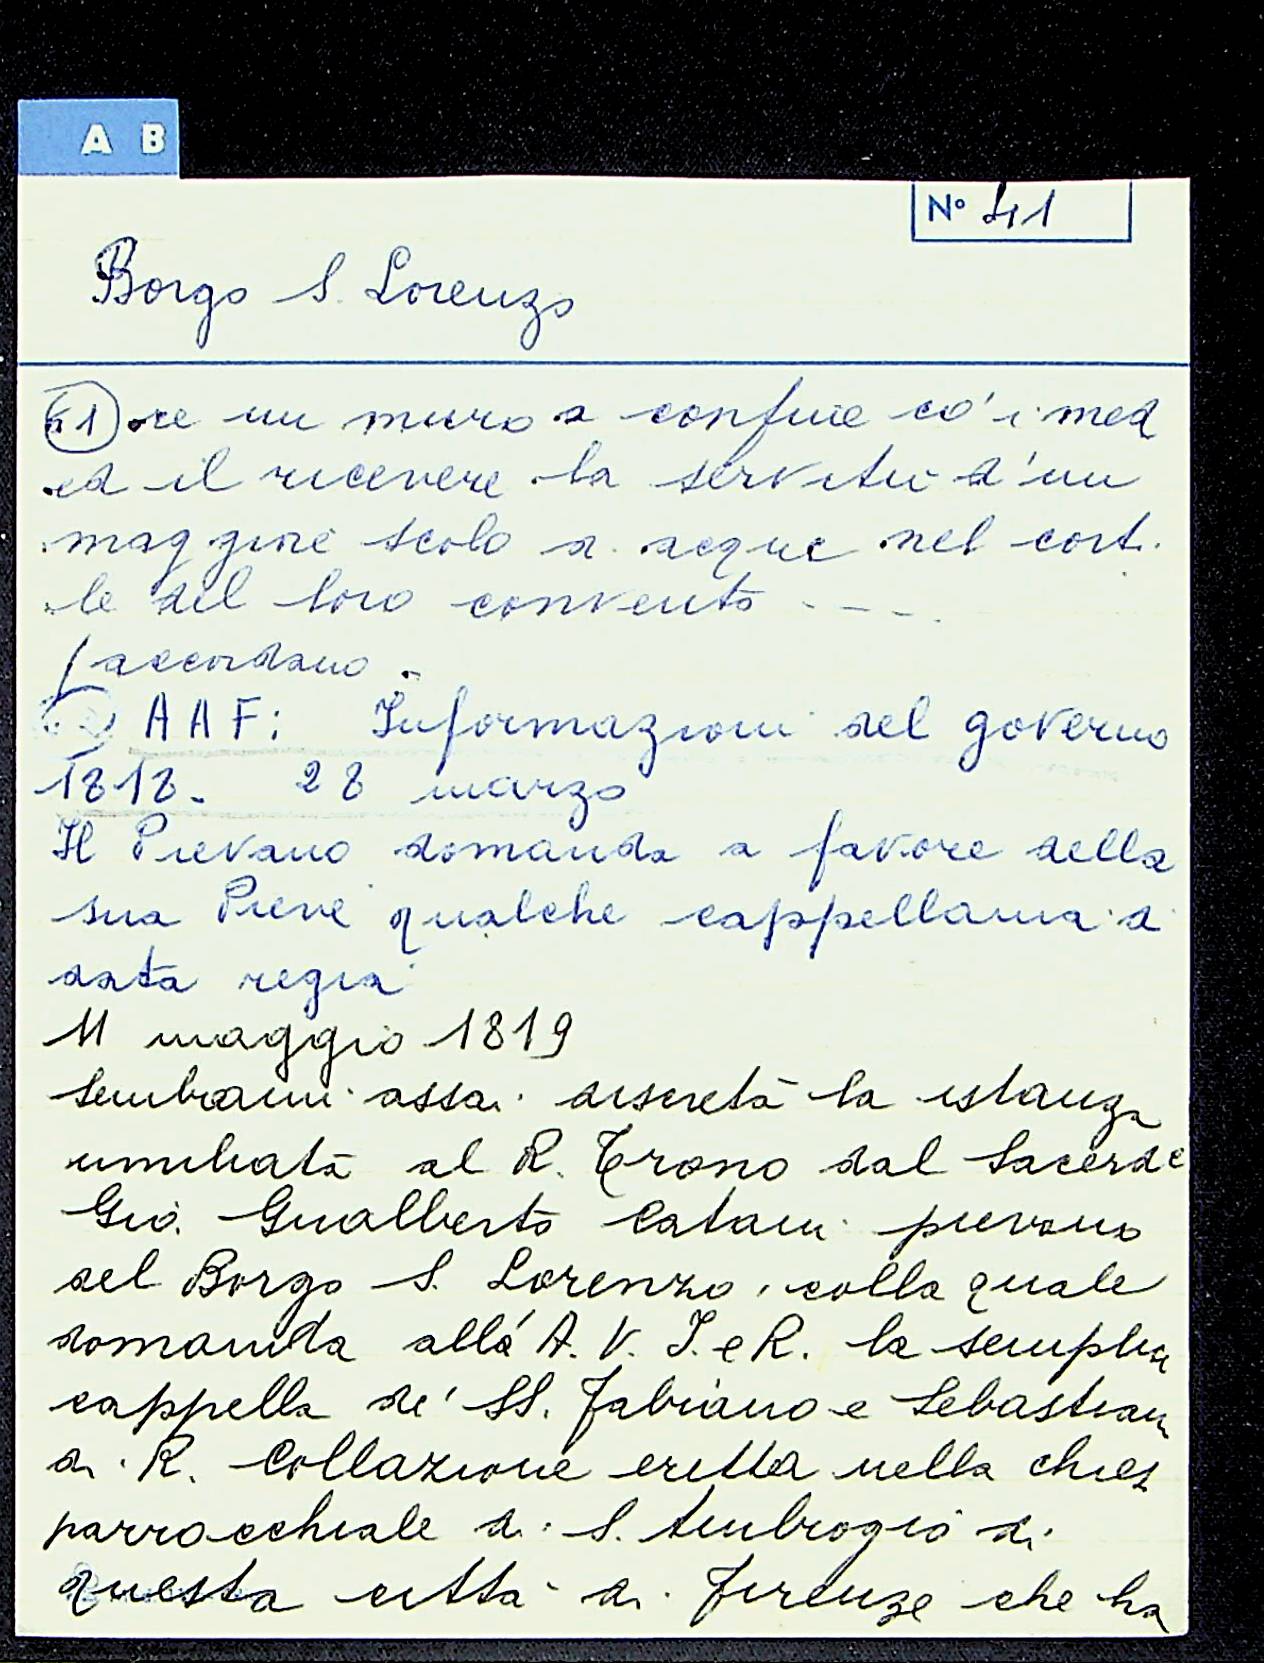 A B
Nº 41
Borgo S. Lorenzo
re un muro a confine co' i med
ed il ricevere la servitù d'un
maggiore scolo di acque nel corti
le del loro convento - - -
s'accordano.
A A F: Informazioni del governo
1818. 28 marzo
Il Pievano domanda a favore della
sua Pieve qualche cappellania di
data regia
11 maggio 1819
Sembrami assai discreta la istanza
umiliata al R. Trono dal Sacerde
Gio. Gualberto Catani pievano
del Borgo S. Lorenzo, colla quale
domanda alla A. V. I. e R. la semplice
cappella de' SS. Fabiano e Sebastiano
di R. Collazione eretta nella chiesa
parrocchiale di S. Ambrogio di
questa città di Firenze che ha